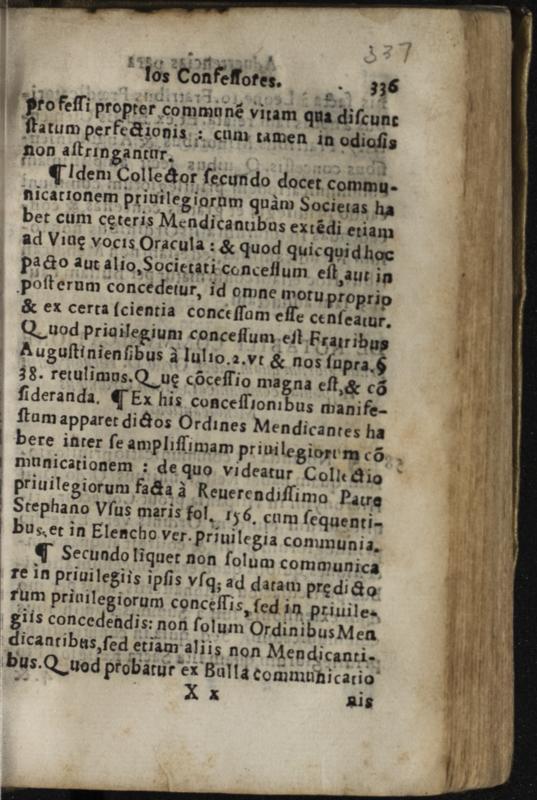 337
los Confessores.
336
professi propter commune͂ vitam qua discunt
statum perfectionis : cum tamen in odiosis
non astringantur.
¶Idem Collector secundo docet commu-
nicationem priuilegiorum quàm Societas ha
bet cum cęteris Mendicantibus exte͂di etiam
ad Viuę vocis Oracula : & quod quicquid hoc
pacto aut alio, Societati concessum est, aut in
posterum concedetur, id omne motu proprio
& ex certa scientia concessum esse censeatur.
Quod priuilegium concessum est Fratribus
Augustiniensibus à Iulio.2.vt & nos supra.§
38. retulimus.Quę cõcessio magna est,& cõ
sideranda. ¶Ex his concessionibus manife-
stum apparet dictos Ordines Mendicantes ha
bere inter se amplissimam priuilegiorum cõ
municationem : de quo videatur Collectio
priuilegiorum facta à Reuerendissimo Patre
Stephano Vsus maris fol. 156. cum sequenti-
bus, et in Elencho ver. priuilegia communia.
¶ Secundo liquet non solum communica
re in priuilegiis ipsis vsq; ad datam prędicto
rum priuilegiorum concessis, sed in priuile-
giis concedendis: non solum Ordinibus Men
dicantibus, sed etiam aliis non Mendicanti-
bus.Quod probatur ex Bulla communicatio
X x
nis